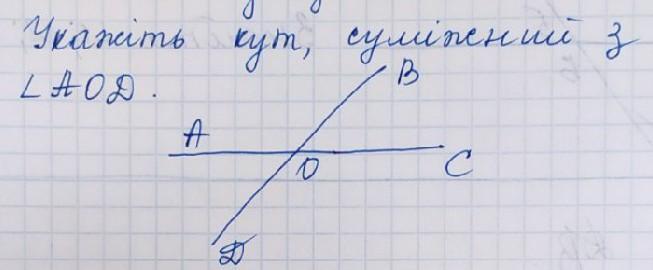 Укажіть кут, суміжний з
∠AOD.
B
A
O
C
D